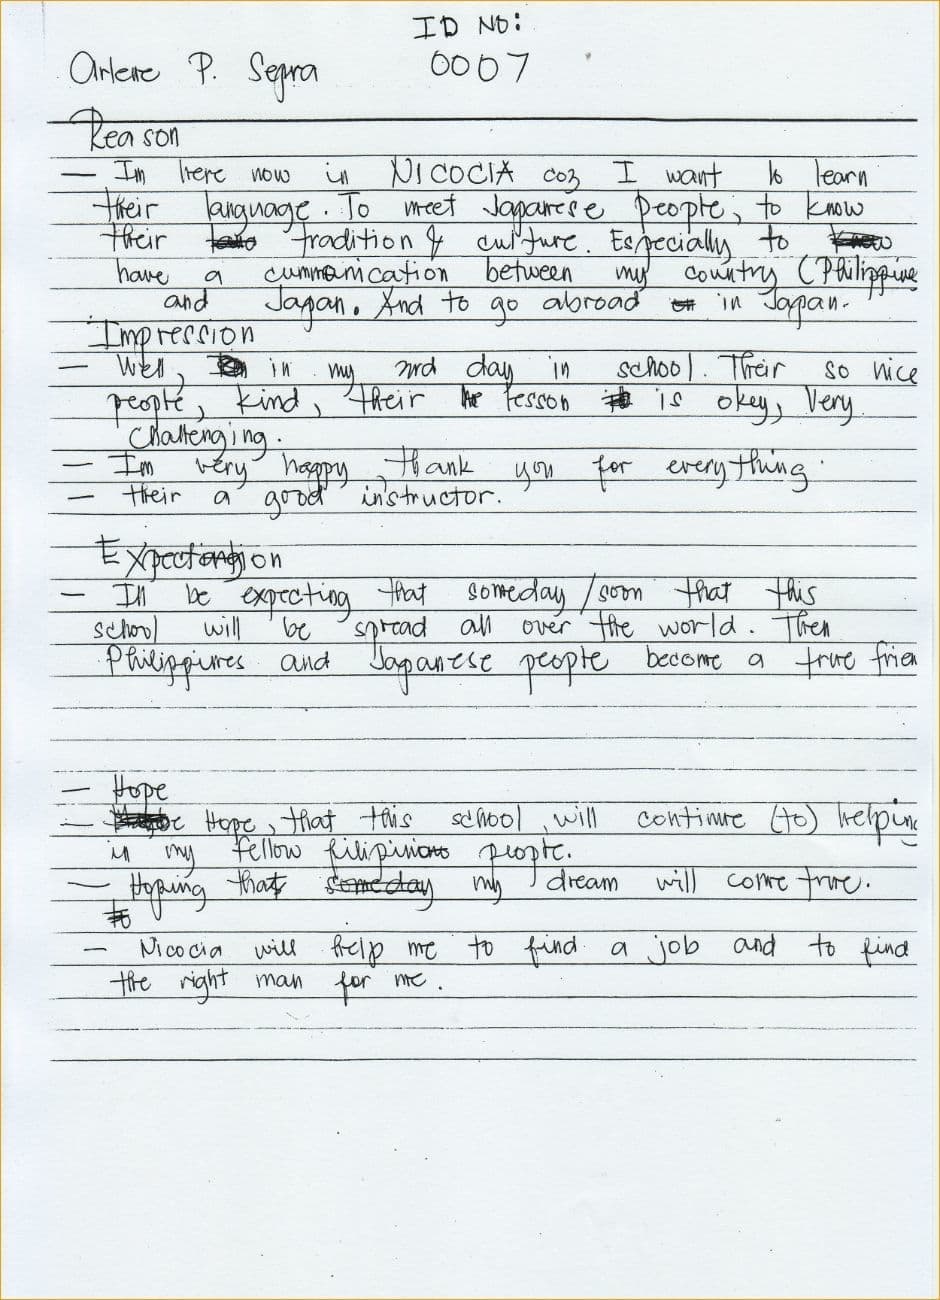 ID NO:
Arlene P. Segra 0007
Reason
— Im here now in NICOCIA coz I want to learn
their language. To meet Japanese people, to know
their tradition & culture. Especially to
have a cummunication between my country (Philippine
and Japan. And to go abroad in Japan.
Impression
— Well, in my 2nd day in school. Their so nice
people, kind, their lesson is okey, Very
Challenging.
— Im very happy, thank you for everything.
— their a good instructor.
Expectation
— I'll be expecting that someday/soon that this
school will be spread all over the world. Then
Philippines and Japanese people become a true frien
— Hope
— Hope, that this school, will continue (to) helping
in my fellow filipinions people.
— Hoping that someday my dream will come true.
to
— Nicocia will help me to find a job and to find
the right man for me.